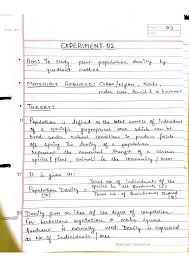 EXPERIMENT-02
AIM: To study plant population density by
quadrant method.
MATERIALS REQUIRED: Cotton/nylon, Nails,
meter scale, pencil & a hammer
THEORY:
Population is defined as the total number of individual
of a specific geographical area, which can be
under natural condition to produce
off spring. The density of a population
represents the numerical strength of a certain
species (plant, animal) in the community / area
It is given as:
Population Density = Total No. of individuals of the
species in all Quadrants (S)
Total No. of Quadrants Studied
Density gives an idea of the degree of competition.
For herbaceous vegetation a meter square
Quadrant is normally used. Density is expressed
as No. of Individuals / area